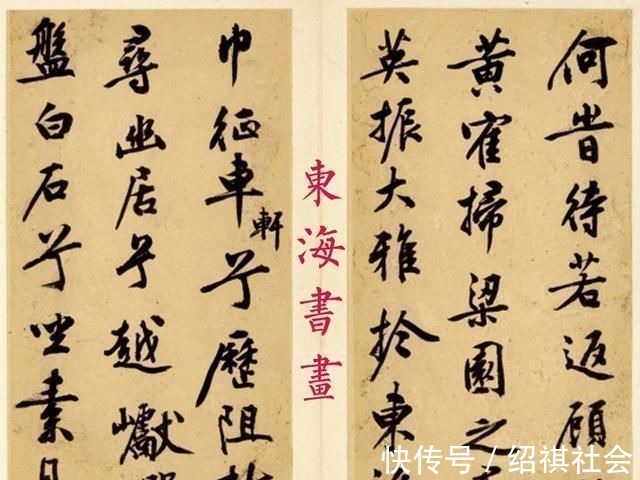 何昔待若返顧
黃寉掃梁園之
英振大雅於東
東海書畫
巾征車兮歷阻
軒
尋幽居兮越巘
盤白石兮坐素
快传号/绍祺社会